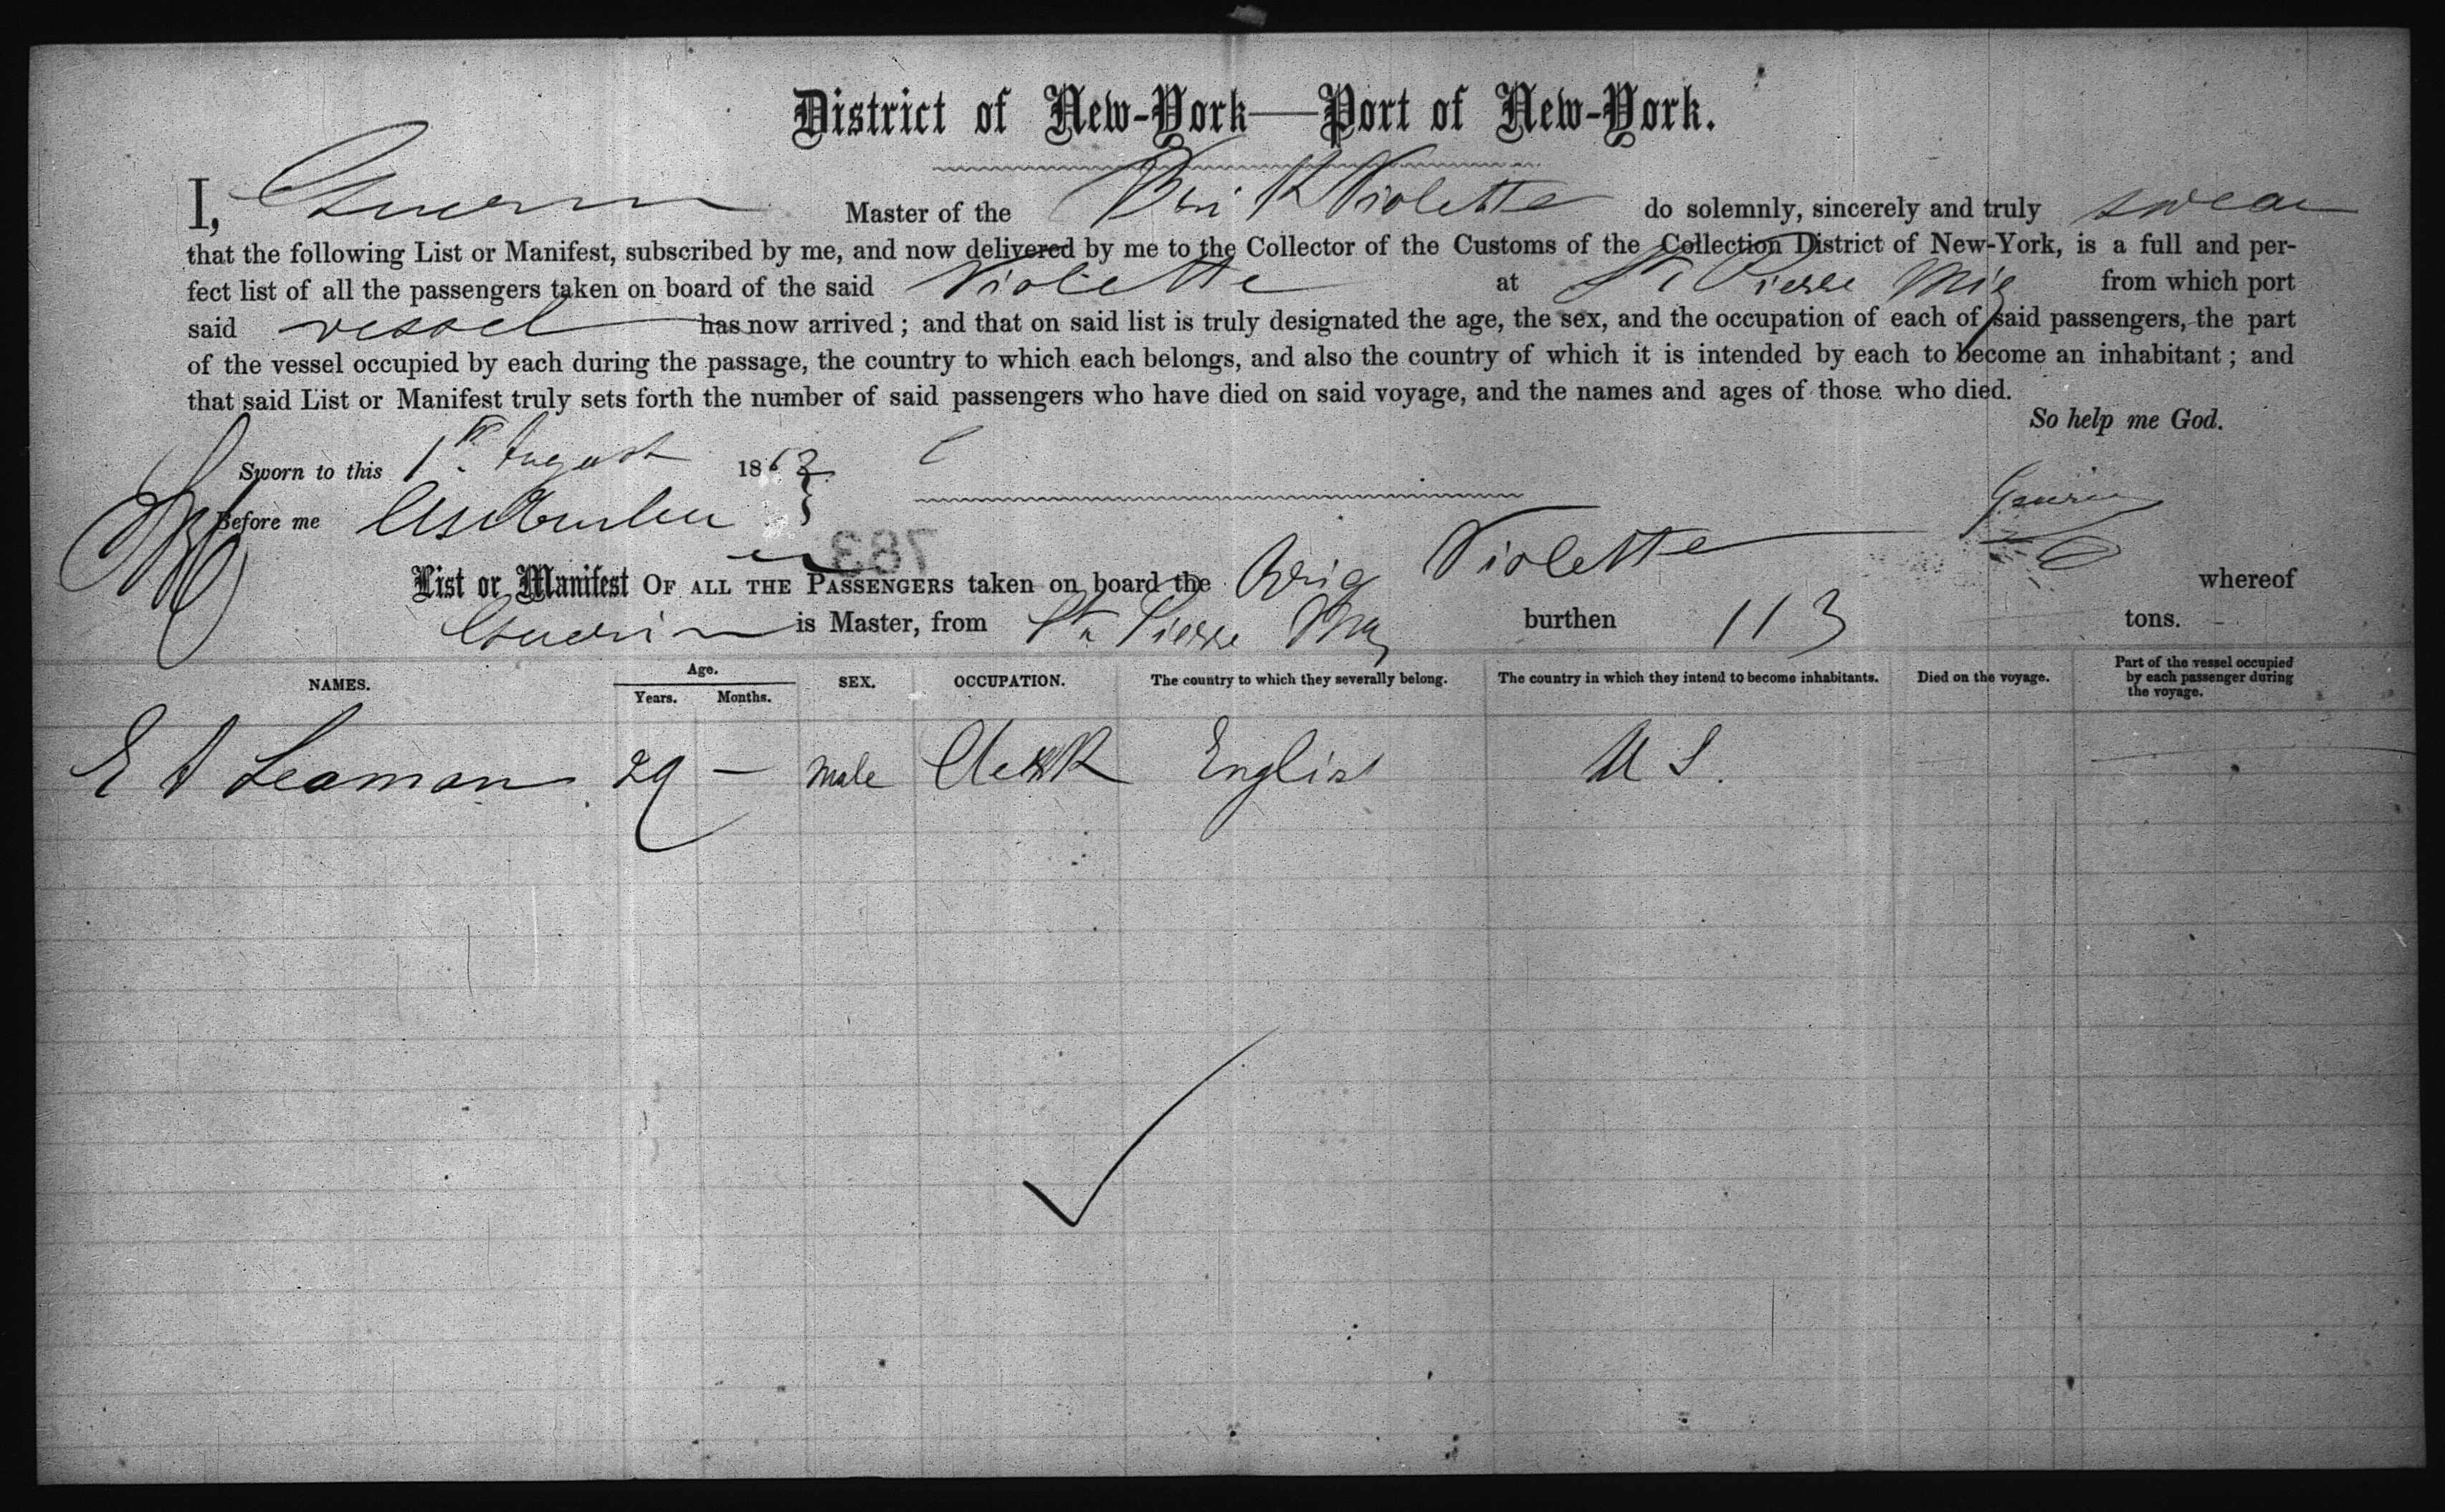 District of New-York—Port of New-York.
I, Guerin Master of the Brig Violette do solemnly, sincerely and truly swear
that the following List or Manifest, subscribed by me, and now delivered by me to the Collector of the Customs of the Collection District of New-York, is a full and per-
fect list of all the passengers taken on board of the said Violette at St Pierre Miq from which port
said vessel has now arrived; and that on said list is truly designated the age, the sex, and the occupation of each of said passengers, the part
of the vessel occupied by each during the passage, the country to which each belongs, and also the country of which it is intended by each to become an inhabitant; and
that said List or Manifest truly sets forth the number of said passengers who have died on said voyage, and the names and ages of those who died.
So help me God.
Sworn to this 1st August 1863
Before me
Guerin
783
List or Manifest OF ALL THE PASSENGERS taken on board the Brig Violette whereof
Guerin is Master, from St Pierre Miq burthen 113 tons.
NAMES. Age. Years. Months. SEX. OCCUPATION. The country to which they severally belong. The country in which they intend to become inhabitants. Died on the voyage. Part of the vessel occupied by each passenger during the voyage.
E A Seaman 29 — Male Clerk English U S.